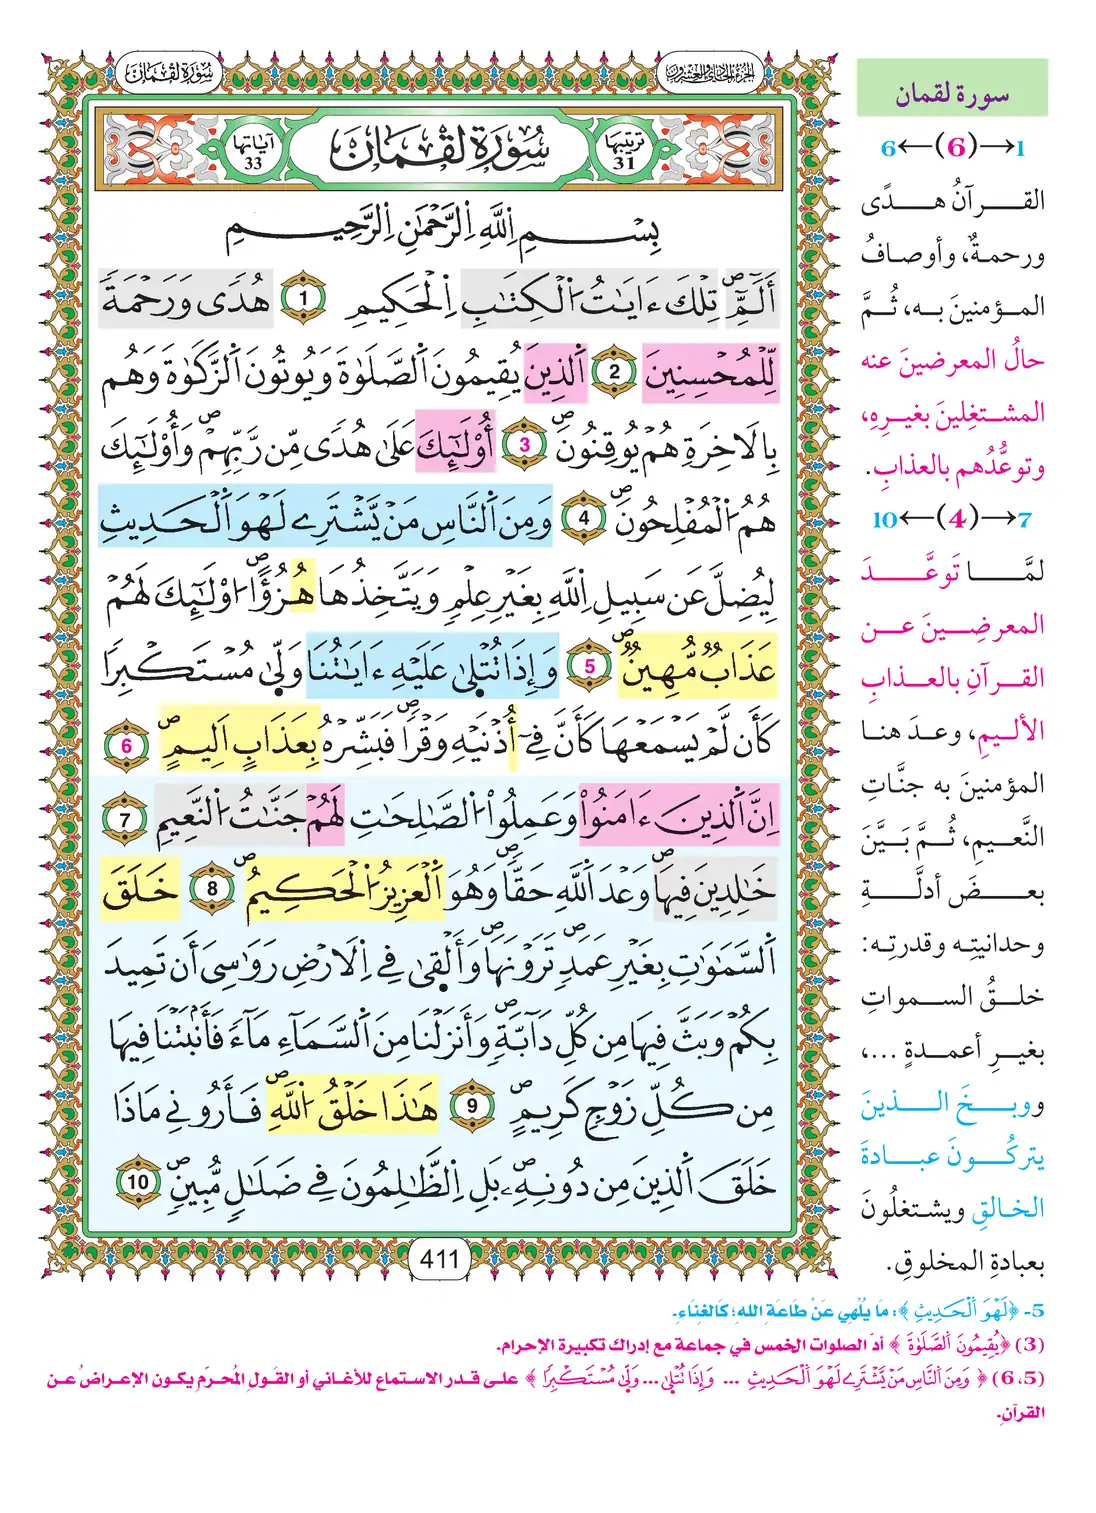 الجزء الحادي والعشرون
سورة لقمان
سُورَةُ لُقْمَانَ
ترتيبها
31
آياتها
33
بِسْمِ اِللَّهِ اِلرَّحْمَٰنِ اِلرَّحِيمِ
أَلَٓمِّٓۖ تِلْكَ ءَايَٰتُ اُ۬لْكِتَٰبِ اِ۬لْحَكِيمِ 1 هُدىٗ وَرَحْمَةٗ
لِّلْمُحْسِنِينَ 2 اَ۬لذِينَ يُقِيمُونَ اَ۬لصَّلَوٰةَ وَيُوتُونَ اَ۬لزَّكَوٰةَ وَهُم
بِالَاخِرَةِ هُمْ يُوقِنُونَۖ 3 أُوْلَٰٓئِكَ عَلَىٰ هُدىٗ مِّن رَّبِّهِمْۖ وَأُوْلَٰٓئِكَ
هُمُ اُ۬لْمُفْلِحُونَۖ 4 وَمِنَ اَ۬لنَّاسِ مَنْ يَّشْتَرِے لَهْوَ اَ۬لْحَدِيثِ
لِيُضِلَّ عَن سَبِيلِ اِ۬للَّهِ بِغَيْرِ عِلْمٖ وَيَتَّخِذُهَا هُزُؤاًۖ ا۟وْلَٰٓئِكَ لَهُمْ
عَذَابٞ مُّهِينٞۖ 5 وَإِذَا تُتْلَىٰ عَلَيْهِ ءَايَٰتُنَا وَلَّىٰ مُسْتَكْبِراٗ
كَأَن لَّمْ يَسْمَعْهَا كَأَنَّ فِےٓ أُذْنَيْهِ وَقْراٗۖ فَبَشِّرْهُ بِعَذَابٍ اَلِيمٍۖ 6
اِنَّ اَ۬لذِينَ ءَامَنُواْ وَعَمِلُواْ اُ۬لصَّٰلِحَٰتِ لَهُمْ جَنَّٰتُ اُ۬لنَّعِيمِ 7
خَٰلِدِينَ فِيهَاۖ وَعْدَ اَ۬للَّهِ حَقّاٗۖ وَهُوَ اَ۬لْعَزِيزُ اُ۬لْحَكِيمُۖ 8 خَلَقَ
اَ۬لسَّمَٰوَٰتِ بِغَيْرِ عَمَدٖۖ تَرَوْنَهَاۖ وَأَلْقَىٰ فِے اِ۬لَارْضِ رَوَٰسِيَ أَن تَمِيدَ
بِكُمْ وَبَثَّ فِيهَا مِن كُلِّ دَآبَّةٖۖ وَأَنزَلْنَا مِنَ اَ۬لسَّمَآءِ مَآءٗ فَأَنۢبَتْنَا فِيهَا
مِن كُلِّ زَوْجٖ كَرِيمٍۖ 9 هَٰذَا خَلْقُ اُ۬للَّهِۖ فَأَرُونِے مَاذَا
خَلَقَ اَ۬لذِينَ مِن دُونِهِۦۖ بَلِ اِ۬لظَّٰلِمُونَ فِے ضَلَٰلٖ مُّبِينٖۖ 10
411
سورة لقمان
1→(6)←6
القرآنُ هدًى
ورحمةٌ، وأوصافُ
المؤمنينَ به، ثُمَّ
حالُ المعرضينَ عنه
المشتغِلينَ بغيرِهِ،
وتوعُّدُهم بالعذابِ.
7→(4)←10
لمَّا تَوعَّدَ
المعرضِينَ عن
القرآنِ بالعذابِ
الأليمِ، وعدَ هنا
المؤمنينَ به جنَّاتِ
النَّعيمِ، ثُمَّ بَيَّنَ
بعضَ أدلَّةِ
وحدانيتِه وقدرتِه:
خلقُ السمواتِ
بغيرِ أعمدةٍ ...،
ووبخَ الذينَ
يتركُونَ عبادةَ
الخالقِ ويشتغلُونَ
بعبادةِ المخلوقِ.
5- ﴿لَهْوَ اَ۬لْحَدِيثِ﴾: مَا يُلْهِي عَنْ طَاعَةِ اللهِ؛ كَالغِنَاءِ.
(3) ﴿يُقِيمُونَ اَ۬لصَّلَوٰةَ﴾ أدّ الصلوات الخمس في جماعة مع إدراك تكبيرة الإحرام.
(5، 6) ﴿وَمِنَ اَ۬لنَّاسِ مَنْ يَّشْتَرِے لَهْوَ اَ۬لْحَدِيثِ ... وَإِذَا تُتْلَىٰ ... وَلَّىٰ مُسْتَكْبِراٗ﴾ على قدر الاستماع للأغاني أو القول المُحرَّم يكون الإعراضُ عن
القرآنِ.